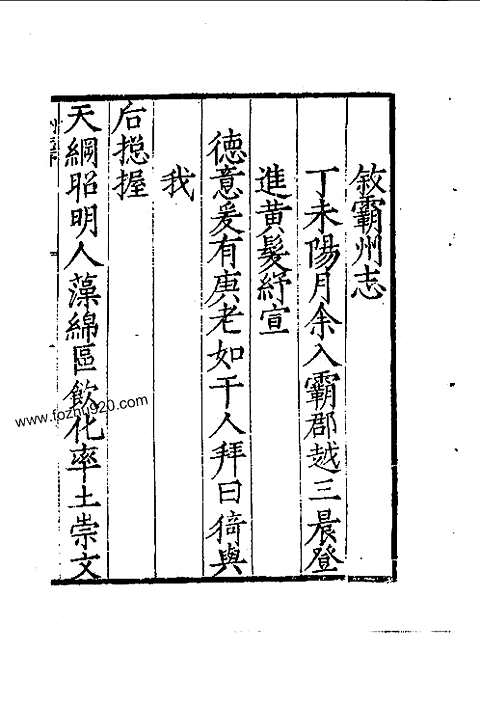 敘霸州志
丁未陽月余入霸郡越三晨登
進黃髮紓宣
德意爰有庚老如干人拜曰猗與
我
后揔握
天綱昭明人藻綿區飲化率土崇文
www.fozhu920.com